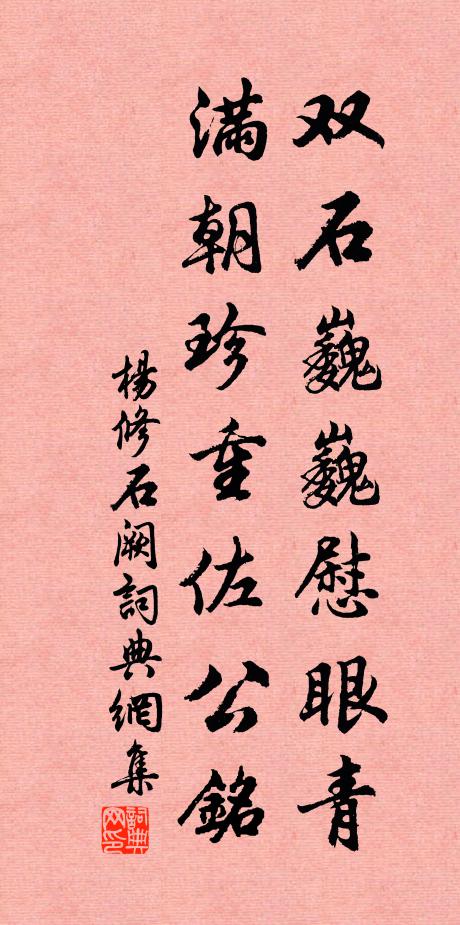 双石巍巍慰眼青
满朝珍重佐公銘
楊修石阙詞典網集
詞典网印